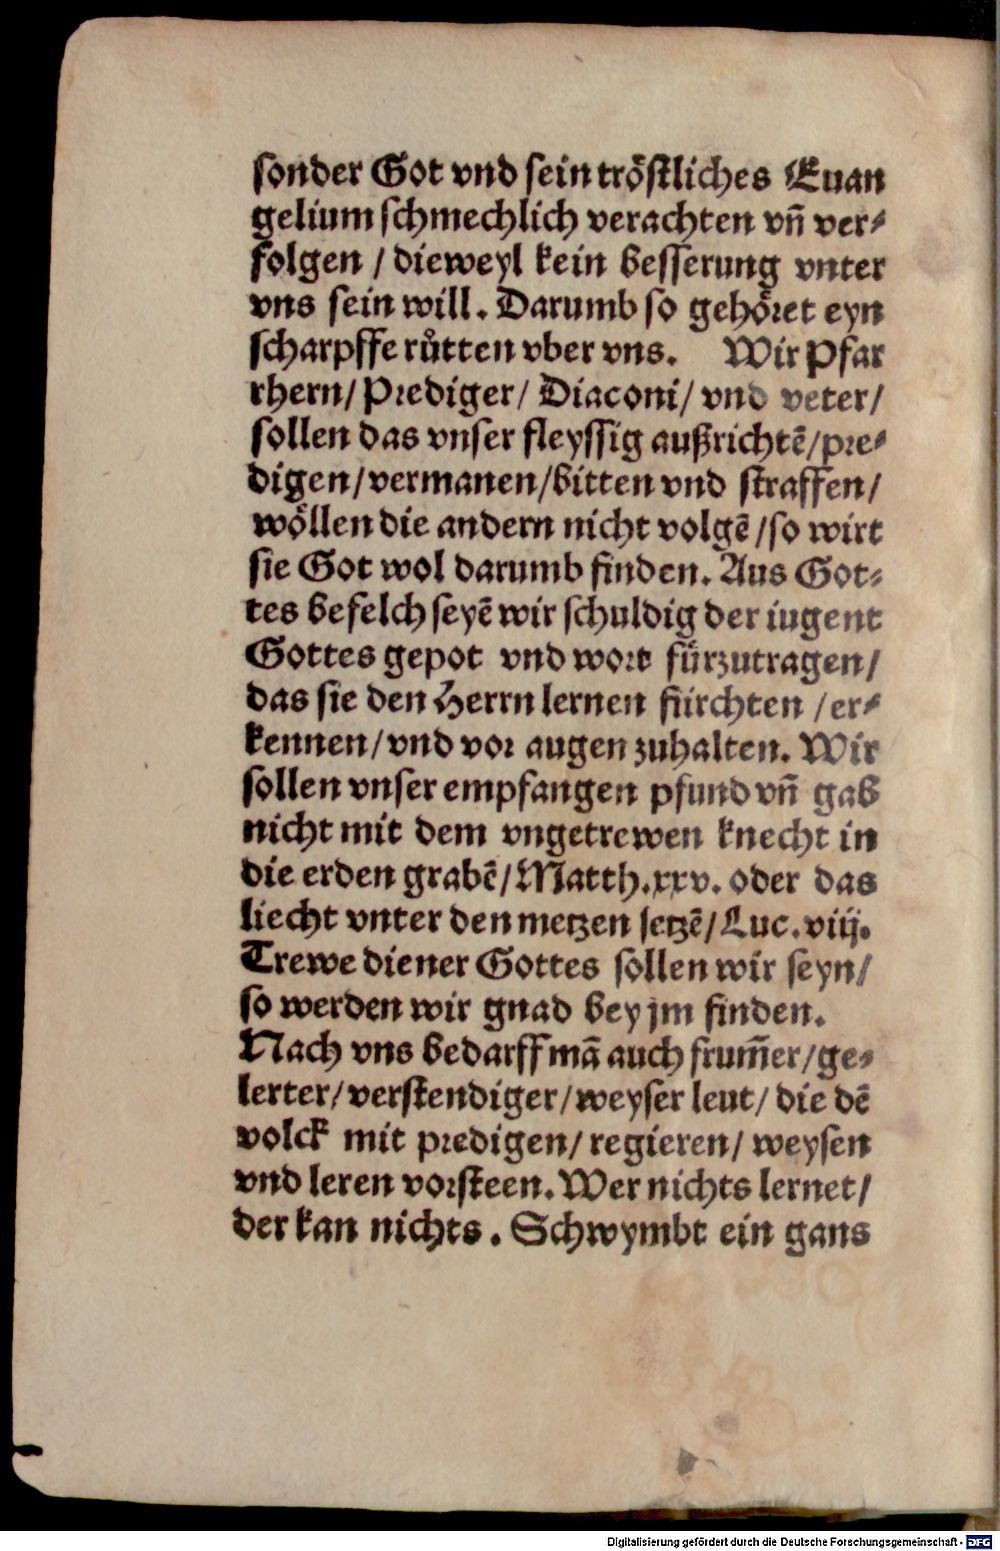 sonder Got vnd sein tröstliches Euan
gelium schmechlich verachten vñ ver⸗
folgen / dieweyl kein besserung vnter
vns sein will. Darumb so gehöret eyn
scharpffe růtten vber vns. Wir Pfar
rhern/ Prediger/ Diaconi/ vnd veter/
sollen das vnser fleyssig außrichtē/pre⸗
digen/vermanen/bitten vnd straffen/
wöllen die andern nicht volgē /so wirt
sie Got wol darumb finden. Aus Got⸗
tes befelch seyē wir schuldig der iugent
Gottes gepot vnd wort fürzutragen/
das sie den Herrn lernen fürchten /er⸗
kennen/vnd vor augen zuhalten. Wir
sollen vnser empfangen pfund vñ gab
nicht mit dem vngetrewen knecht in
die erden grabē/Matth.xxv. oder das
liecht vnter den metzen setzē/Luc.viij.
Trewe diener Gottes sollen wir seyn/
so werden wir gnad bey jm finden.
Nach vns bedarff mā auch frum̃er/ge⸗
lerter/verstendiger/weyser leut/ die dē
volck mit predigen/regieren/weysen
vnd leren vorsteen. Wer nichts lernet/
der kan nichts. Schwymbt ein gans
Digitalisierung gefördert durch die Deutsche Forschungsgemeinschaft - DFG